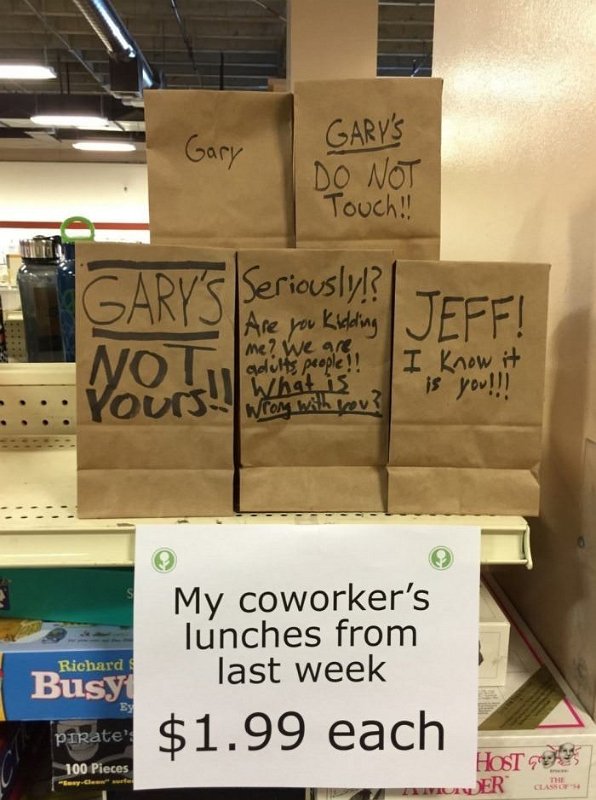 Gary
GARY'S
DO NOT
Touch!!
GARY'S
NOT
Yours!!
Seriously!?
Are you Kidding
me? We are
adults people!!
What is
Wrong with you?
JEFF!
I Know it
is you!!!
My coworker's
lunches from
last week
$1.99 each
Richard
Busy
PiRate's
100 Pieces
HOST
THE
CLASS OF '54